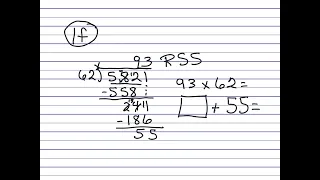 1f
93 R55
62)5821
-558
241
-186
55
93 x 62=
□ + 55=